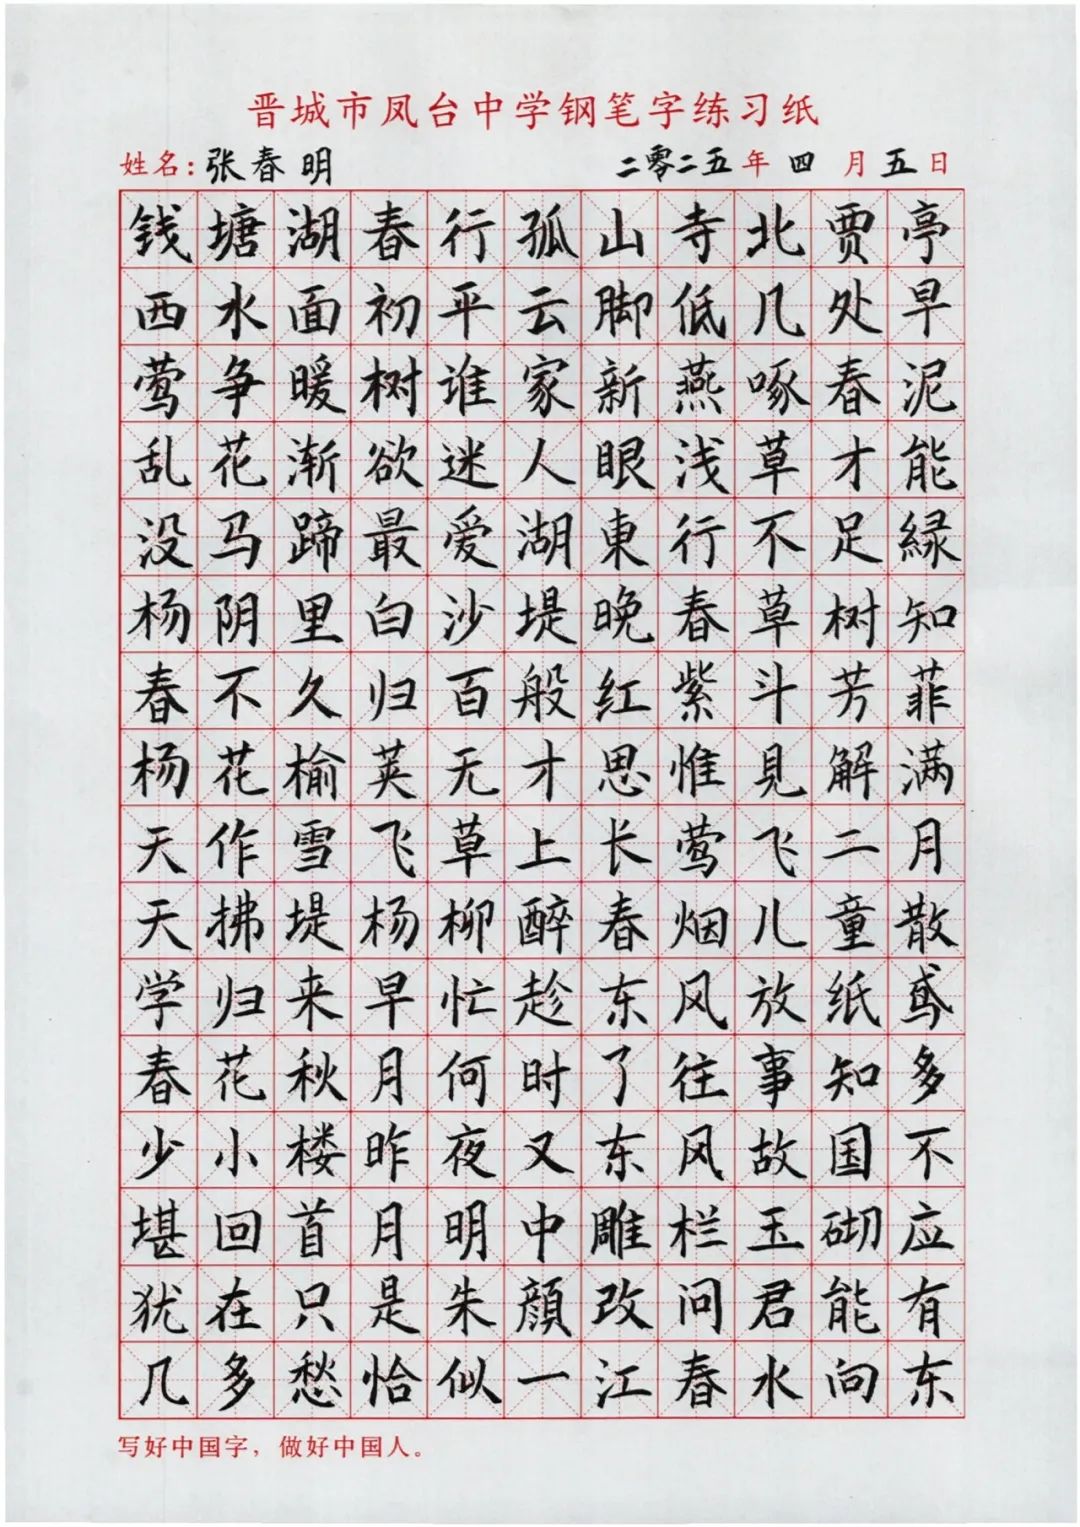 晋城市凤台中学钢笔字练习纸
姓名：张春明 二零二五年四月五日
钱塘湖春行孤山寺北贾亭
西水面初平云脚低几处早
莺争暖树谁家新燕啄春泥
乱花渐欲迷人眼浅草才能
没马蹄最爱湖東行不足緑
杨阴里白沙堤晚春草树知
春不久归百般红紫斗芳菲
杨花榆荚无才思惟见解满
天作雪飞草上长莺飞二月
天拂堤杨柳醉春烟儿童散
学归来早忙趁东风放纸鸢
春花秋月何时了往事知多
少小楼昨夜又东风故国不
堪回首月明中雕栏玉砌应
犹在只是朱顔改问君能有
几多愁恰似一江春水向东
写好中国字，做好中国人。